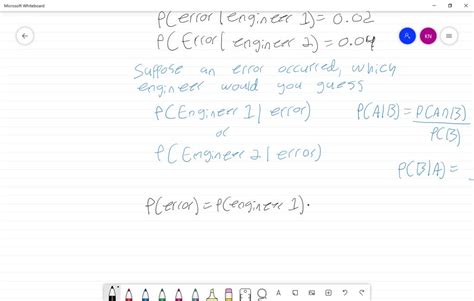 Microsoft Whiteboard
P(error | engineer 1) = 0.02
P(Error | engineer 2) = 0.04
Suppose an error occurred, which
engineer would you guess
P(Engineer 1 | error)
or
P(Engineer 2 | error)
P(A|B) = P(A∩B)
P(B)
P(B|A) =
P(error) = P(engineer 1) ·
KN
A